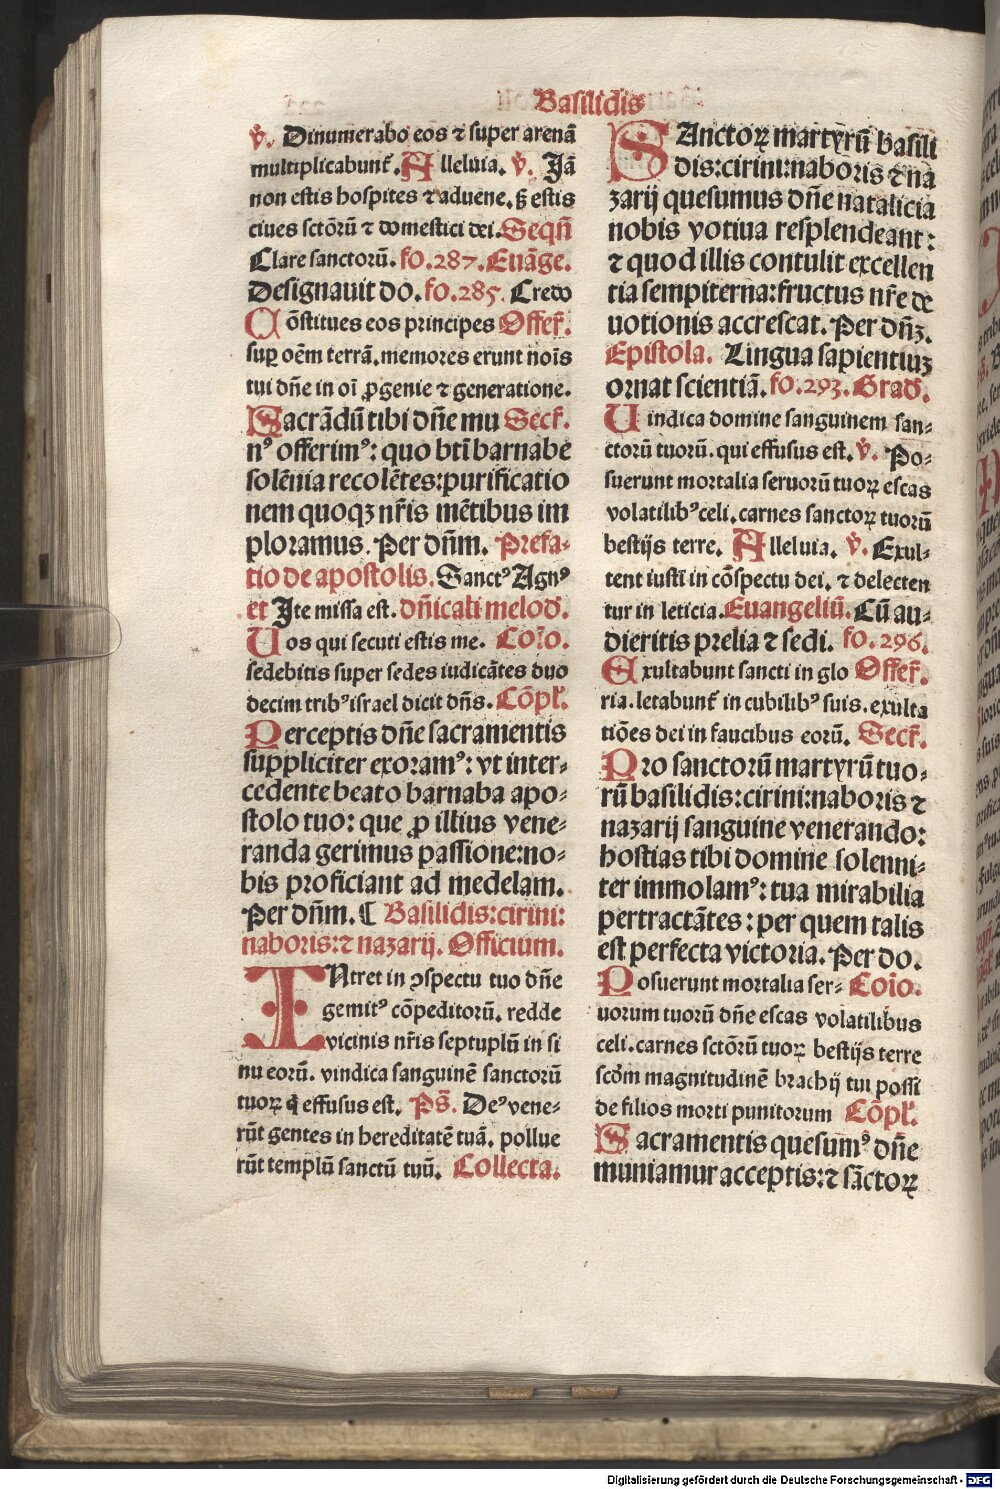 Basilidis
℣. Dinumerabo eos ⁊ super arenã
multiplicabunt᷑. Alleluia. ℣. Jã
non estis hospites ⁊ aduene. ß estis
ciues sctõrũ ⁊ domestici dei. Seqñ
Clare sanctorũ. fo. 287. Euãge.
Designauit do. fo. 285. Credo
Cõstitues eos principes Offer᷑.
suꝑ oẽm terrã. memores erunt noĩs
tui dñe in oĩ ꝓgenie ⁊ generatione.
Sacrãdũ tibi dñe mu Secr᷑.
nꝰ offerimꝰ: quo btĩ barnabe
solẽnia recolẽtes: purificatio
nem quoqꝫ nr̃is mẽtibus im
ploramus. Per dñm. Prefa⸗
tio de apostolis. Sanctꝰ Agnꝰ
et Ite missa est. dñicali melod᷑.
Uos qui secuti estis me. Cõio.
sedebitis super sedes iudicãtes duo
decim tribꝰ israel dicit dñs. Cõpl᷑.
Perceptis dñe sacramentis
suppliciter exoramꝰ: vt inter⸗
cedente beato barnaba apo⸗
stolo tuo: que ꝓ illius vene⸗
randa gerimus passione: no⸗
bis proficiant ad medelam.
Per dñm. ¶ Basilidis: cirini:
naboris: ⁊ nazarij. Officium.
INtret in ꝯspectu tuo dñe
gemitꝰ cõpeditorũ. redde
vicinis nr̃is septuplũ in si
nu eorũ. vindica sanguinẽ sanctorũ
tuoꝝ q̃ effusus est. Ps̃. Deꝰ vene⸗
rũt gentes in hereditatẽ tuã. pollue
rũt templũ sanctũ tuũ. Collecta.
SAnctoꝝ martyrũ basili
dis: cirini: naboris ⁊ na
zarij quesumus dñe natalicia
nobis votiua resplendeant:
⁊ quod illis contulit excellen
tia sempiterna: fructus nr̃e de
uotionis accrescat. Per dñꝫ.
Epistola. Lingua sapientiuꝫ
ornat scientiã. fo. 293. Grad᷑.
Uindica domine sanguinem san⸗
ctorũ tuorũ. qui effusus est. ℣. Po⸗
suerunt mortalia seruorũ tuoꝝ escas
volatilibꝰ celi. carnes sanctoꝝ tuorũ
bestijs terre. Alleluia. ℣. Exul⸗
tent iusti in cõspectu dei. ⁊ delecten
tur in leticia. Euangeliũ. Cũ au⸗
dieritis prelia ⁊ sedi. fo. 296.
Exultabunt sancti in glo Offer᷑.
ria. letabunt᷑ in cubilibꝰ suis. exulta
tiões dei in faucibus eorũ. Secr᷑.
Pro sanctorũ martyrũ tuo⸗
rũ basilidis: cirini: naboris ⁊
nazarij sanguine venerando:
hostias tibi domine solenni⸗
ter immolamꝰ: tua mirabilia
pertractãtes: per quem talis
est perfecta victoria. Per do.
Posuerunt mortalia ser⸗ Cõio.
uorum tuorũ dñe escas volatilibus
celi. carnes sctõrũ tuoꝝ bestijs terre
scðm magnitudinẽ brachij tui possi
de filios morti punitorum Cõpl᷑.
Sacramentis quesumꝰ dñe
muniamur acceptis: ⁊ sãctoꝝ
Digitalisierung gefördert durch die Deutsche Forschungsgemeinschaft - DFG